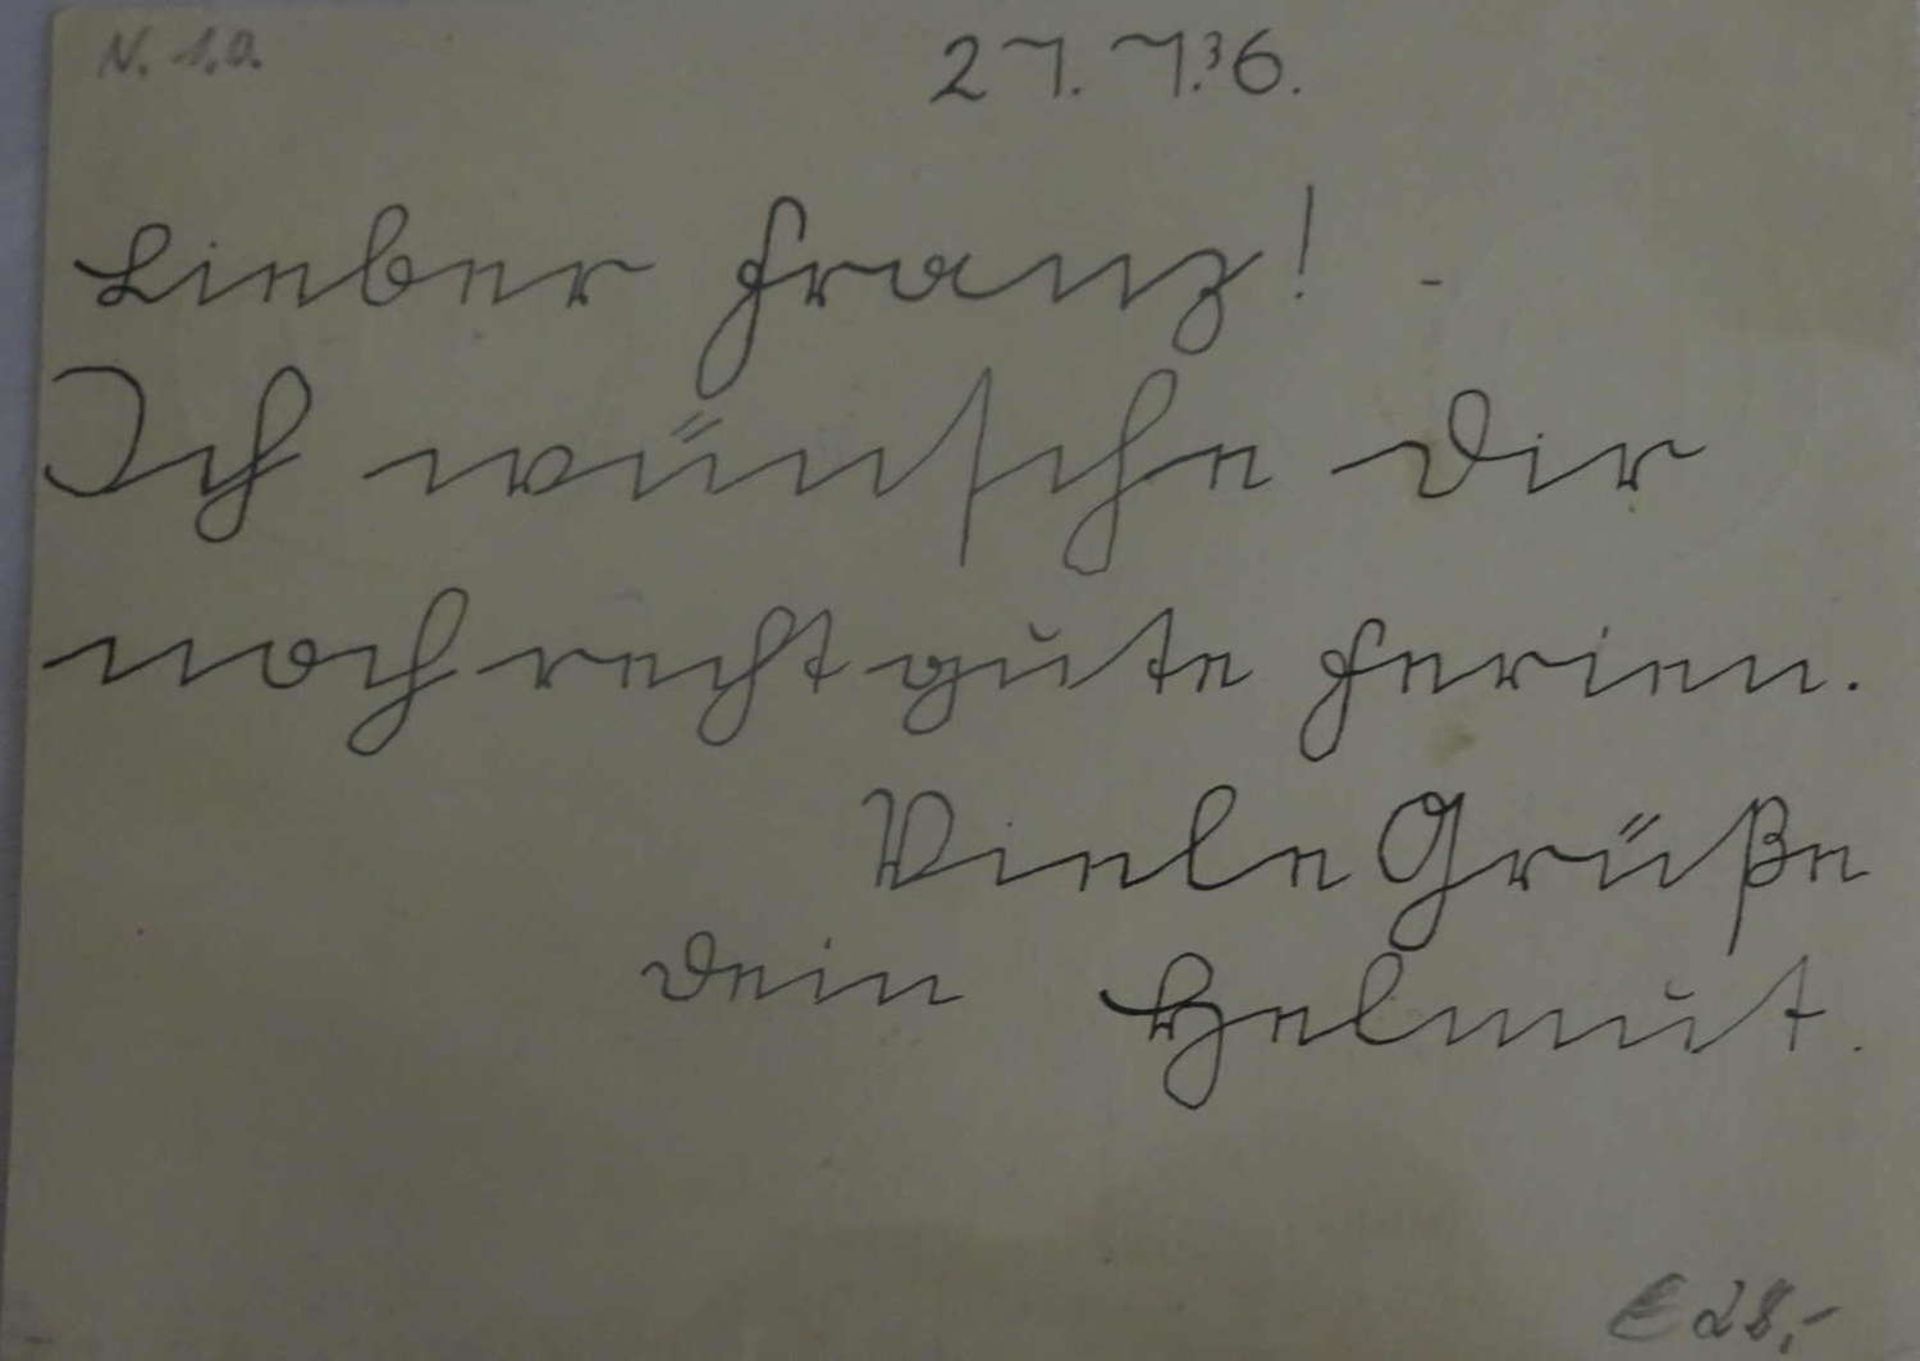 N. 1.0.
27. 7. 36.
Lieber Franz!
Ich wünsche Dir
noch recht gute Ferien.
Viele Grüße
Dein Helmut.
€ 28,-